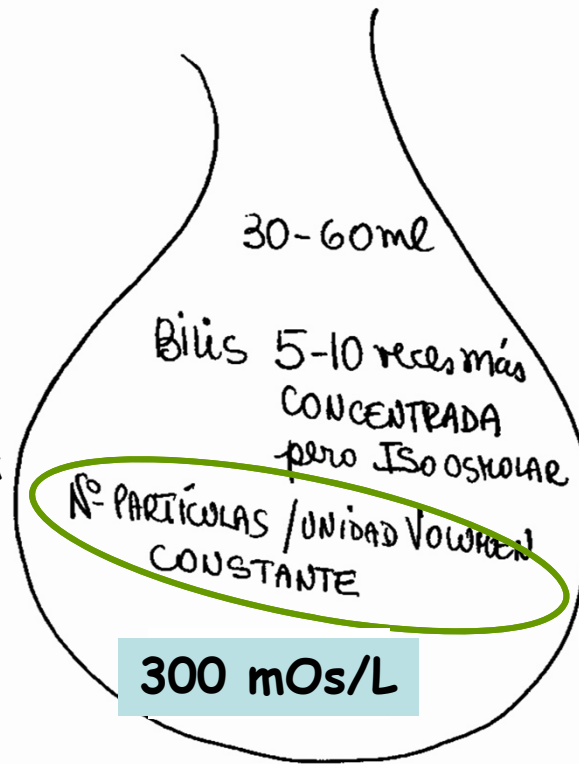 30-60ml
Bilis 5-10 veces más
CONCENTRADA
pero ISOOSMOLAR
Nº PARTÍCULAS / UNIDAD VOLUMEN
CONSTANTE
300 mOs/L